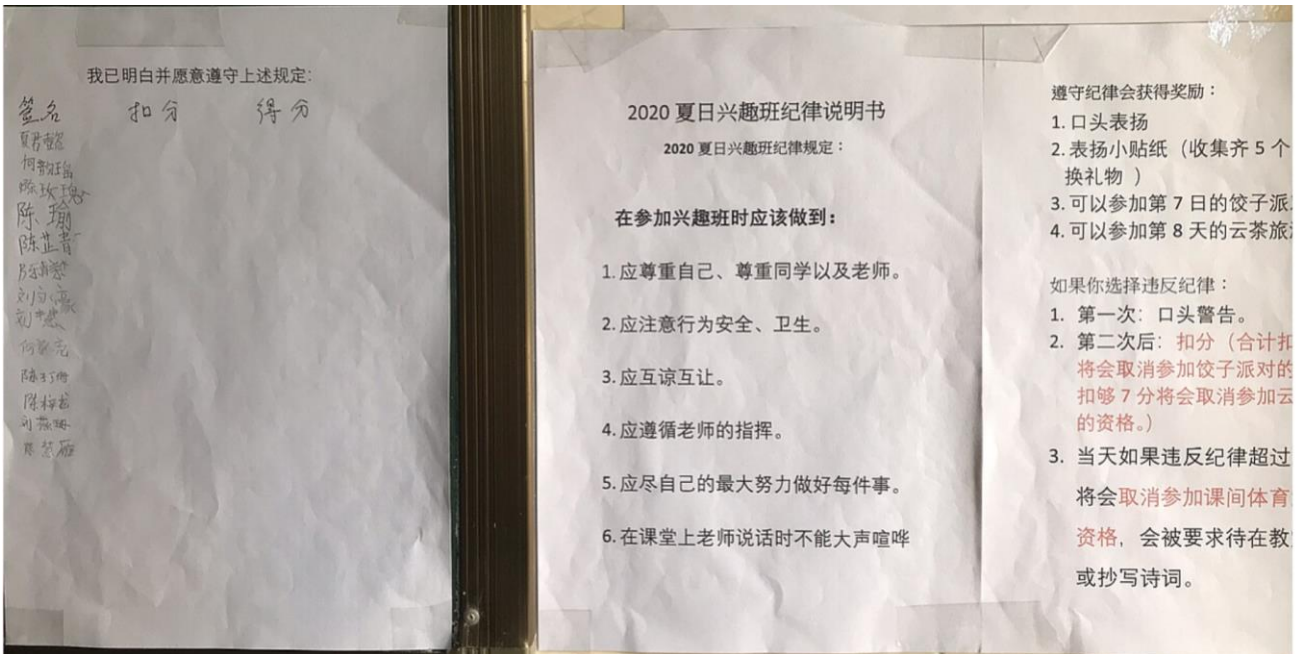 我已明白并愿意遵守上述规定:
签名 扣分 得分
陈瑜
陈芷
2020 夏日兴趣班纪律说明书
2020 夏日兴趣班纪律规定：
在参加兴趣班时应该做到:
1.应尊重自己、尊重同学以及老师。
2.应注意行为安全、卫生。
3.应互谅互让。
4.应遵循老师的指挥。
5.应尽自己的最大努力做好每件事。
6.在课堂上老师说话时不能大声喧哗
遵守纪律会获得奖励：
1.口头表扬
2.表扬小贴纸（收集齐 5 个
换礼物 ）
3.可以参加第 7 日的饺子派
4.可以参加第 8 天的云茶旅
如果你选择违反纪律：
1. 第一次: 口头警告。
2. 第二次后: 扣分（合计扣
将会取消参加饺子派对的
扣够 7 分将会取消参加云
的资格。）
3. 当天如果违反纪律超过
将会取消参加课间体育
资格，会被要求待在教
或抄写诗词。